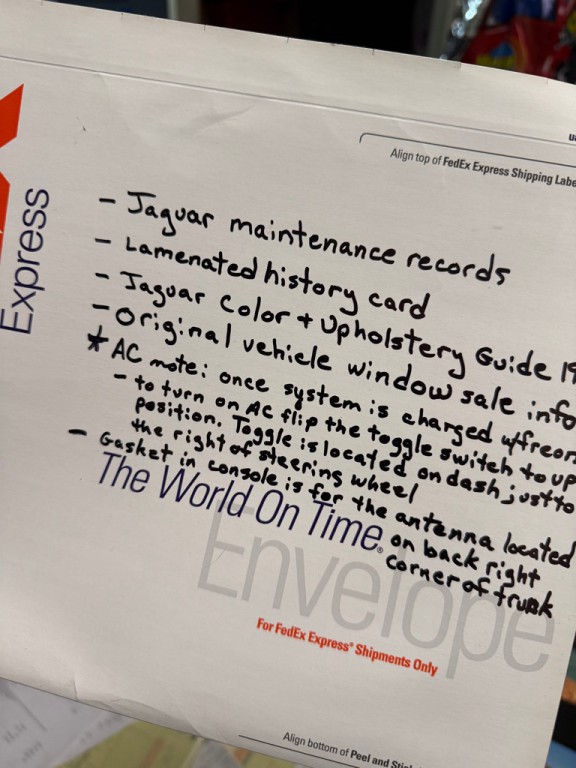 Align top of FedEx Express Shipping Labe
Express
- Jaguar maintenance records
- Lamenated history card
- Jaguar Color + Upholstery Guide 19
- Original vehicle window sale info
* AC note: once system is charged w/freon
- to turn on AC flip the toggle switch to up
position. Toggle is located on dash just to
the right of steering wheel
- Gasket in console is for the antenna located
on back right
corner of trunk
The World On Time®
Envelope
For FedEx Express® Shipments Only
Align bottom of Peel and Stic